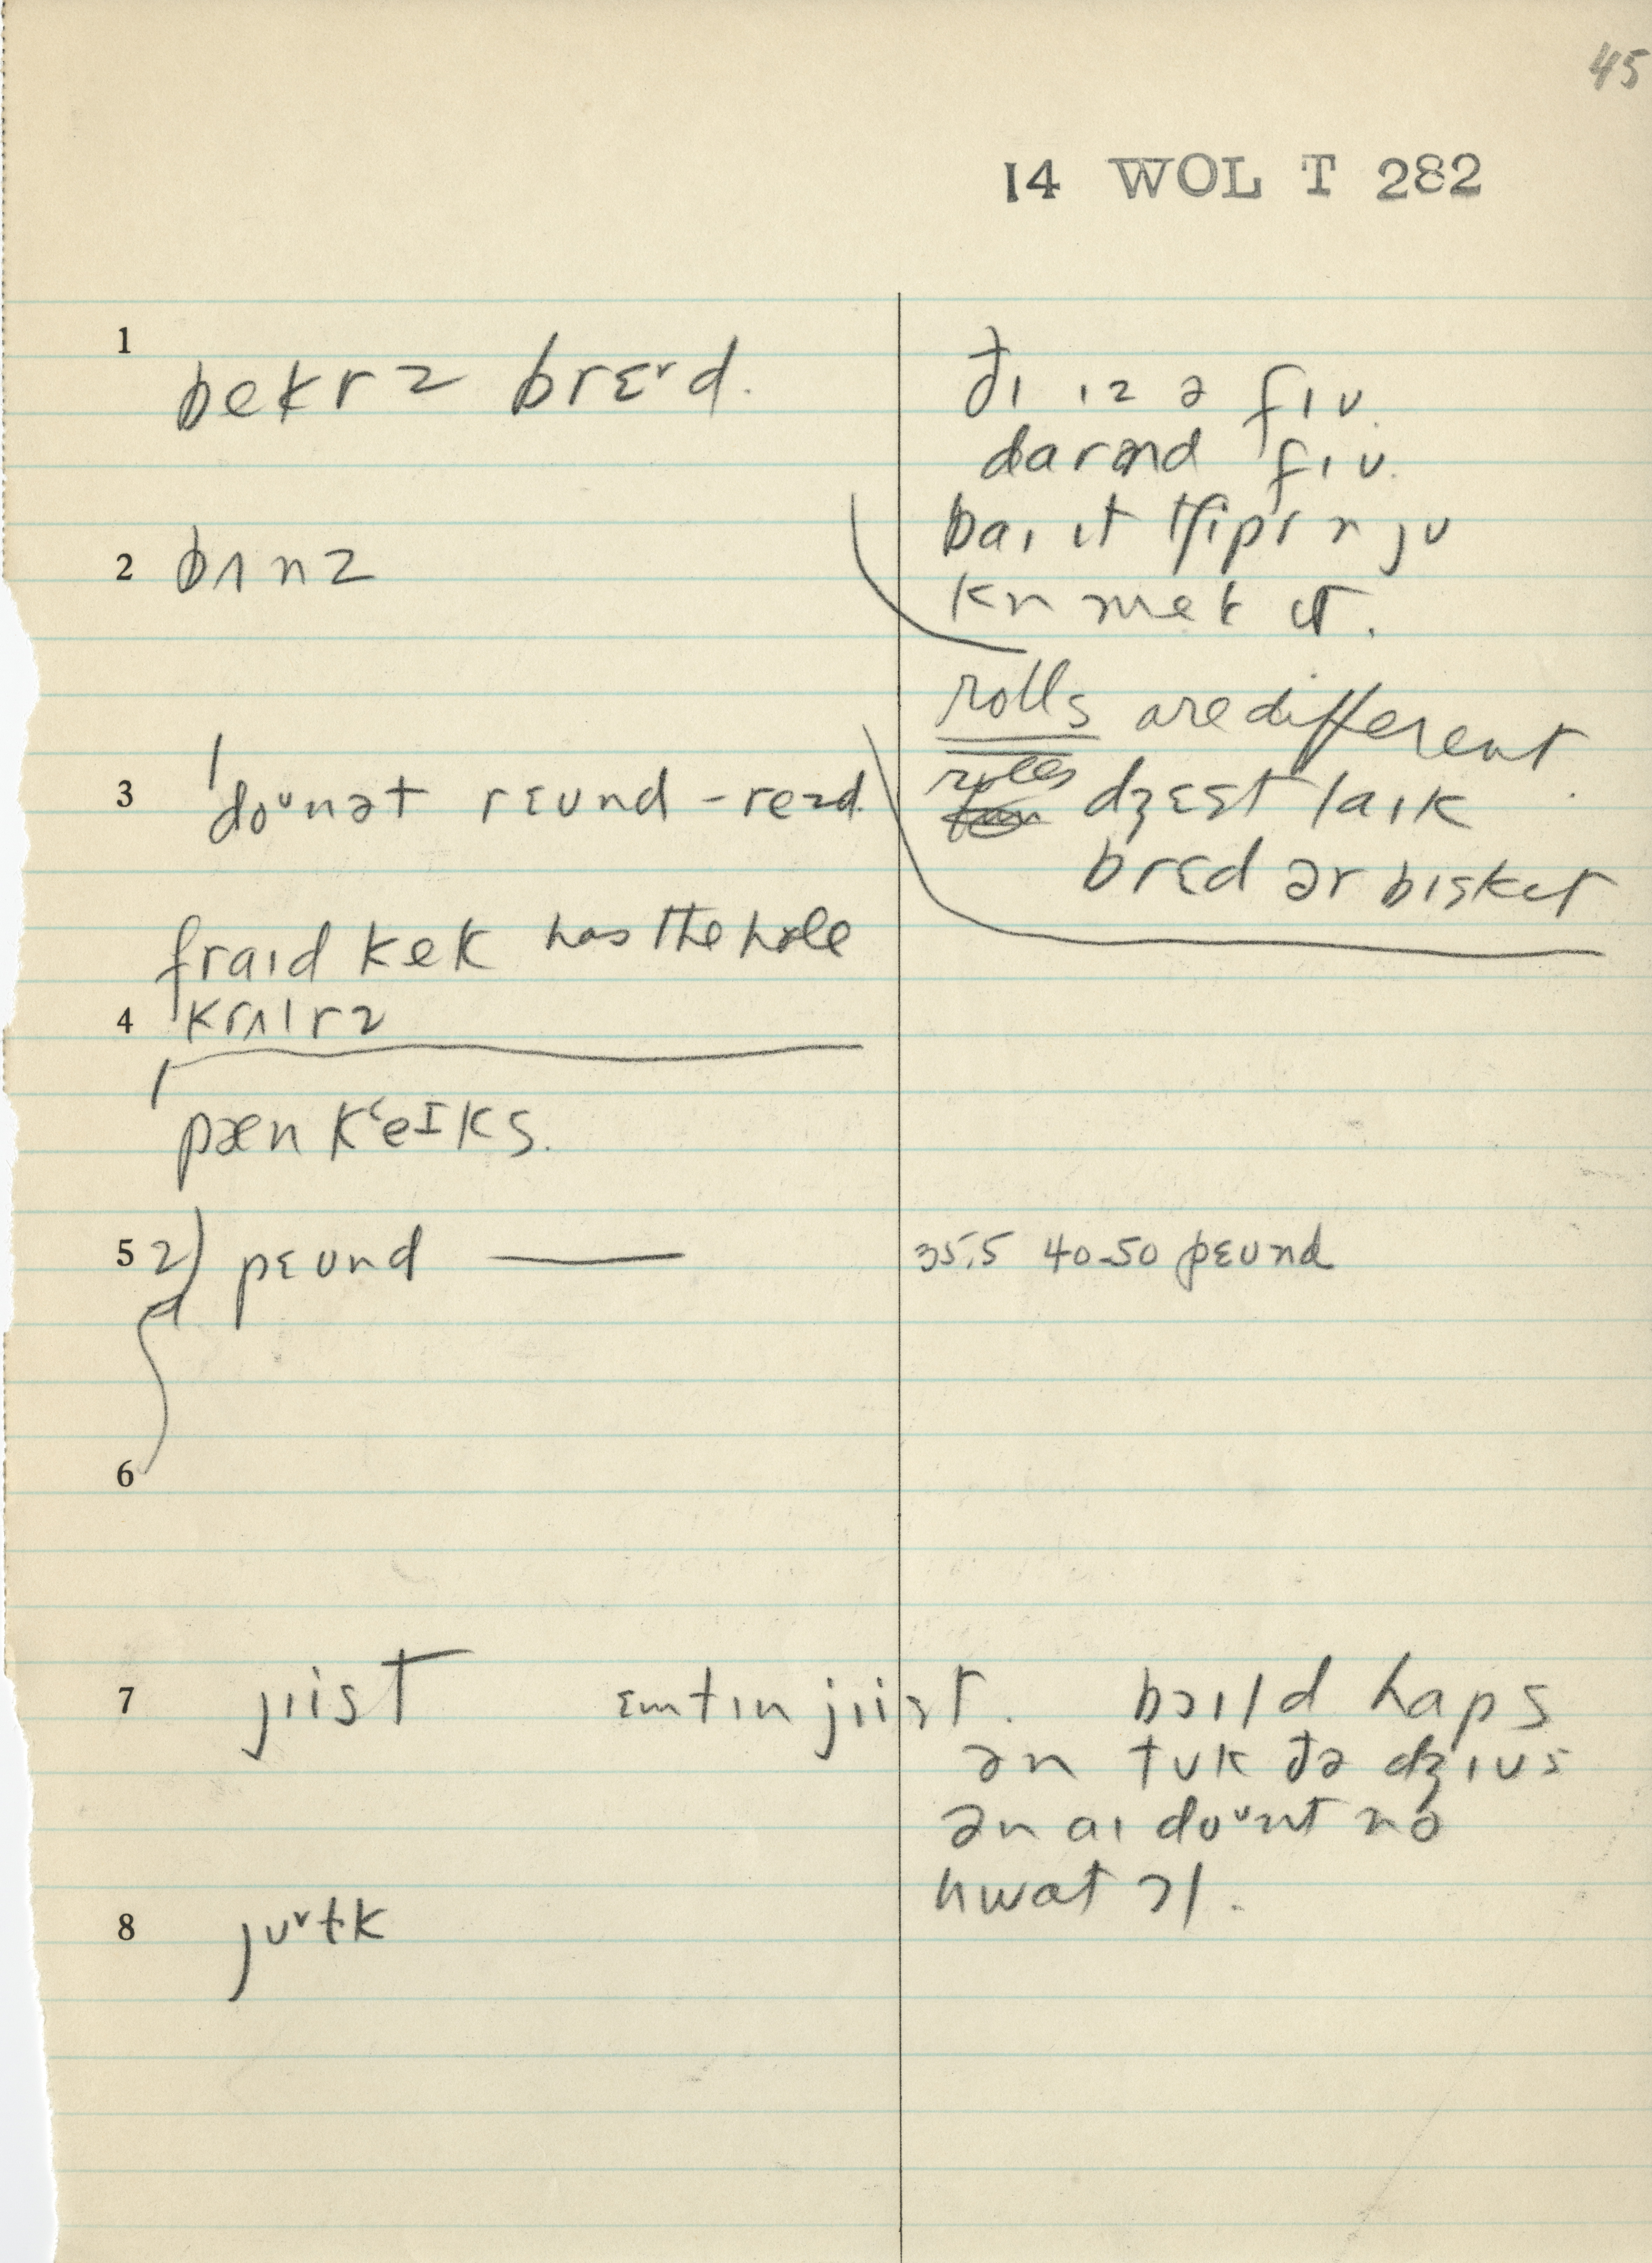 45
14 WOL T 282
1 bekrz brɛᵛd.
ðɪ ɪz ə fɪu.
darənd fɪu.
2 bʌnz
baɪ ɪt tʃipr n ju
kn mek ɪt.
rolls are different.
3 doᵘnət rɛund - rezd.
rolls dʒɛst laɪk
brɛd ər bɪskɪt
fraɪd kek has the hole
4 krʌlrz
pæn kʻeɪks.
5 2) pɛund —— 35.5 40-50 pɛund
6
7 jiist ɛmtɪn jiist. bɔɪld haps
ən tuk ðə dʒɪus
ən aɪ doᵘnt no
hwat ɔl.
8 juᵛɫk